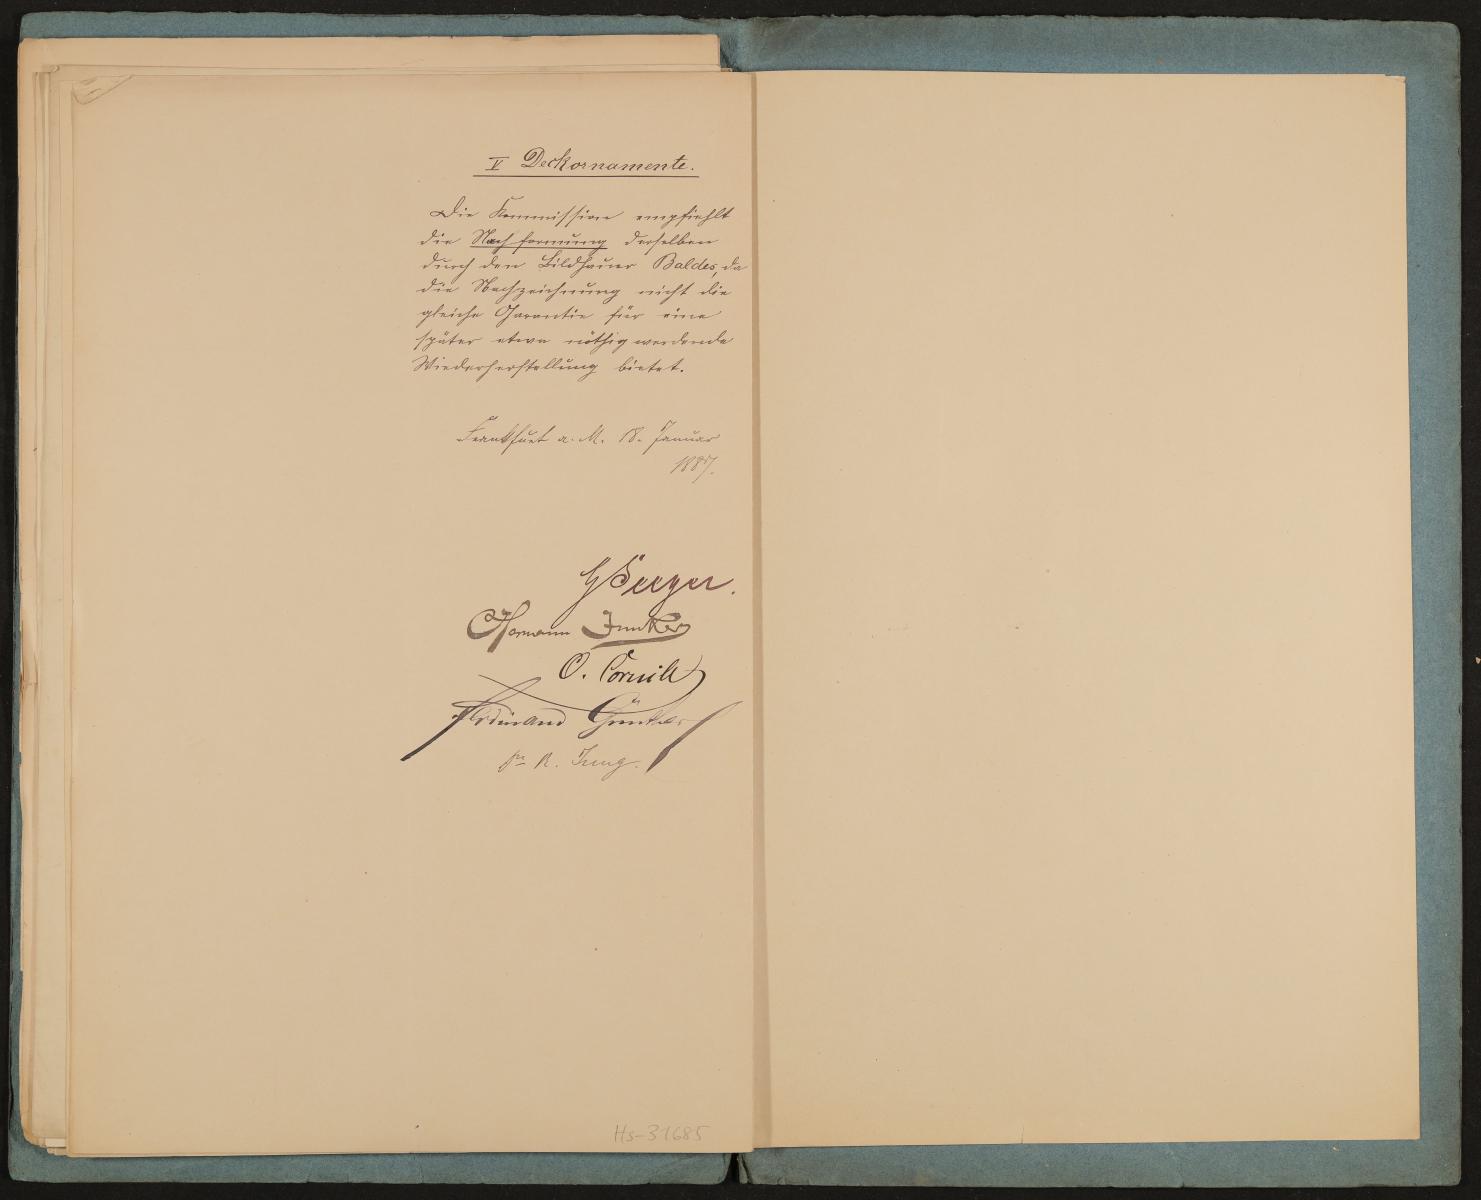 V Deckornamente.
Die Kommission empfiehlt
die Nachformung derselben
durch den Bildhauer Baldes, da
die Nachzeichnung nicht die
gleiche Garantie für eine
später etwa nöthig werdende
Wiederherstellung bietet.
Frankfurt a. M. 18. Januar
1887.
G Seeger.
Hermann Junker
O. Cornill
Ferdinand Günther
R. Jung.
Hs-31685